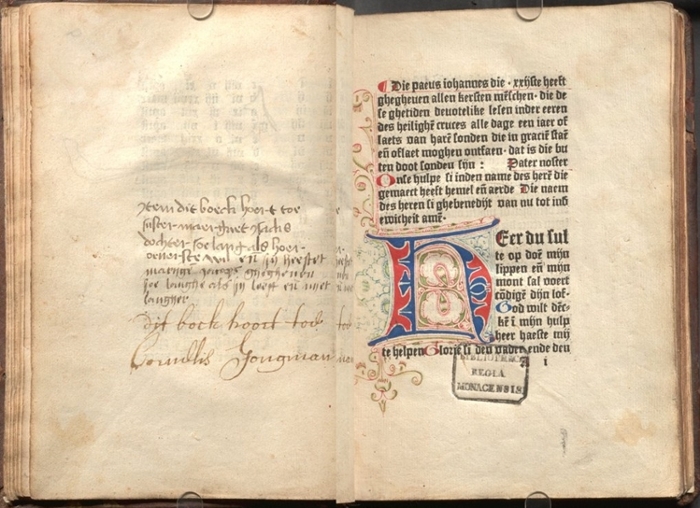 Item dit boeck hoert toe
suster maergriet
dochter soe lang als hoer
oeuerste wil en
jaer ghegheuen
soe langhe als in leeft en niet
langher
dit boek hoort toe
Cornelis Jongman
Die paeus iohannes die · xxijste heeft
ghegheuen allen kersten mēschen · die de
se ghetiden deuotelike lesen inder eeren
des heilighē cruces alle dage een iaer of
laets van harē sonden die in graciē staē
eñ oflaet moghen ontfaen · dat is die bu
ten doot sonden sijn : Pater noster
Onse hulpe si inden name des herē die
gemaect heeft hemel eñ aerde Die naem
des heren si ghebenedijt van nu tot ind
ewicheit amē ·
HEer du sul
te op doē mijn
lippen eñ mijn
mont sal voert
cōdigē dijn lof ·
God wilt dēc
kē ī mijn hulp
heer haeste mij
te helpen Glorie si den vader ende den
i
BIBLIOTHECA
REGIA
MONACENSIS